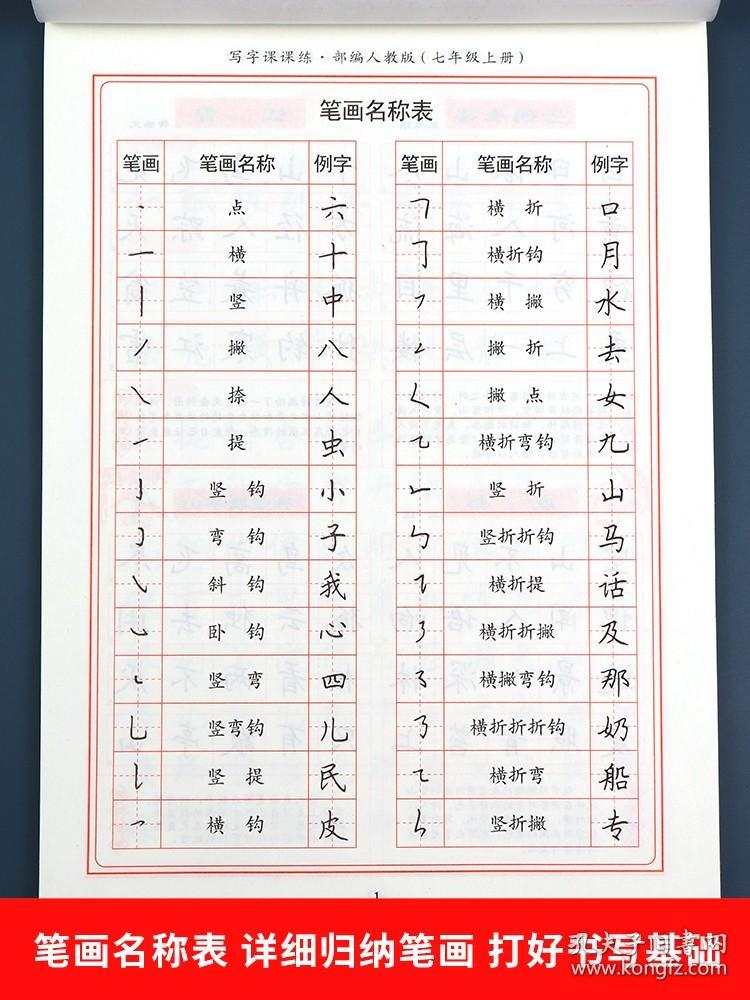 写字课课练·部编人教版(七年级上册)
笔画名称表
笔画 笔画名称 例字
丶 点 六
一 横 十
丨 竖 中
丿 撇 八
㇏ 捺 人
㇀ 提 虫
亅 竖钩 小
㇁ 弯钩 子
㇂ 斜钩 我
㇃ 卧钩 心
㇄ 竖弯 四
乚 竖弯钩 儿
𠄌 竖提 民
乛 横钩 皮
笔画 笔画名称 例字
𠃍 横折 口
𠃌 横折钩 月
㇇ 横撇 水
𠃋 撇折 去
㇛ 撇点 女
㇈ 横折弯钩 九
𠃊 竖折 山
㇉ 竖折折钩 马
㇊ 横折提 话
㇋ 横折折撇 及
㇌ 横撇弯钩 那
𠄎 横折折折钩 奶
㇍ 横折弯 船
ㄣ 竖折撇 专
1
笔画名称表 详细归纳笔画 打好书写基础
孔夫子旧书网
www.kongfz.com